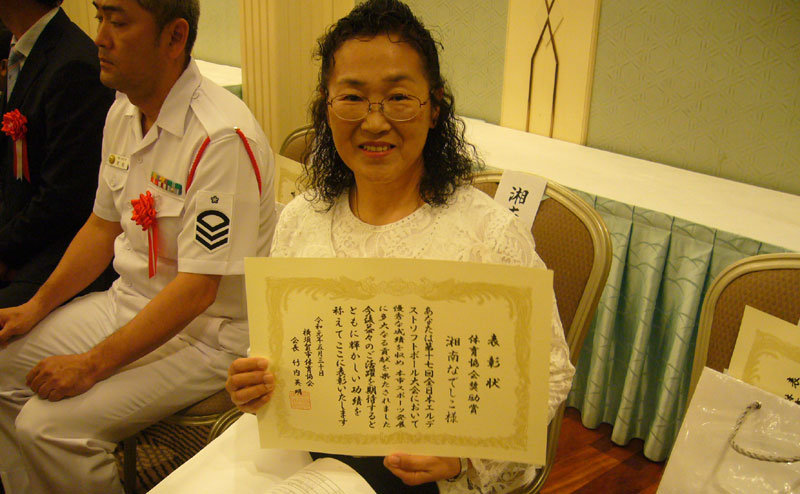 表彰状
体育協会奨励賞
湘南なでしこ様
あなたは第十七回全日本エルデ
ストソフトボール大会において
優秀な成績を収め本市スポーツ発展
に多大なる貢献を果たされました
今後益々のご活躍を期待すると
ともに輝かしい功績を
称えてここに表彰いたします
令和元年五月三十日
横須賀市体育協会
会長 竹内英明
湘南